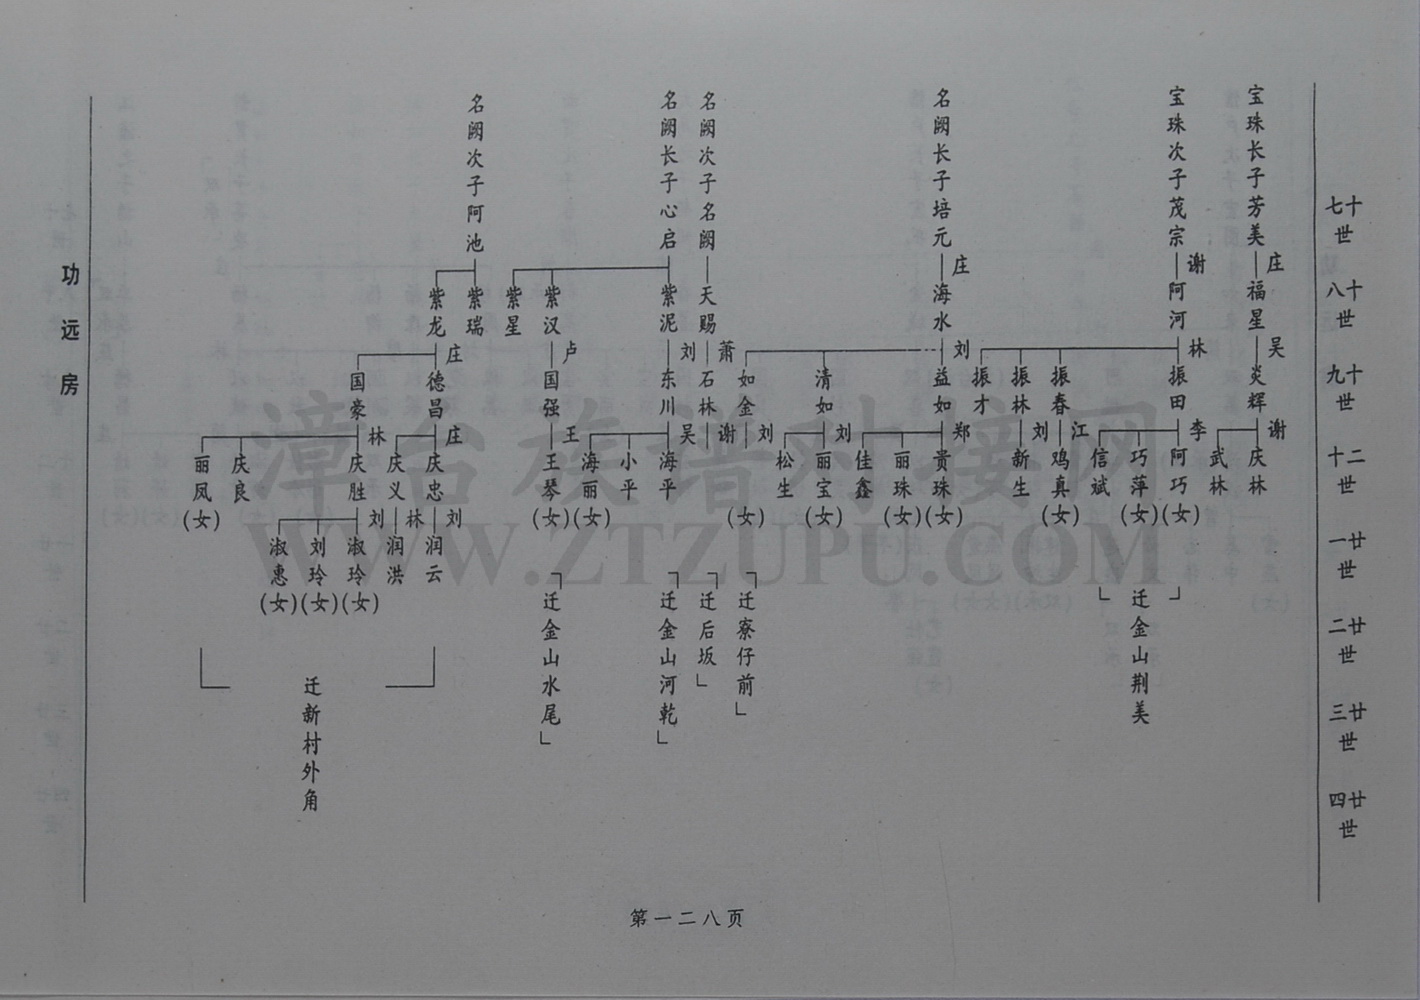 十七世
十八世
十九世
二十世
廿一世
廿二世
廿三世
廿四世
宝珠长子芳美
庄
福星
吴
炎辉
谢
庆林
武林
宝珠次子茂宗
谢
阿河
林
振田
李
阿巧(女)
巧萍(女)
信斌
振春
江
鸡真(女)
振林
刘
新生
振才
迁金山荆美
名阙长子培元
庄
海水
刘
益如
郑
贵珠(女)
丽珠(女)
佳鑫
清如
刘
丽宝(女)
松生
如金
刘
名阙次子名阙
天赐
萧
石林
谢
(女)
迁寮仔前
迁后坂
名阙长子心启
紫泥
刘
东川
吴
海平
小平
海丽(女)
迁金山河乾
紫汉
卢
国强
王
王琴(女)
紫星
迁金山水尾
名阙次子阿池
紫瑞
紫龙
庄
德昌
庄
庆忠
刘
润云
庆义
林
润洪
国豪
林
庆胜
刘
淑玲(女)
刘玲(女)
淑惠(女)
庆良
丽凤(女)
迁新村外角
功远房
第一二八页
漳台族谱对接网
WWW.ZTZUPU.COM